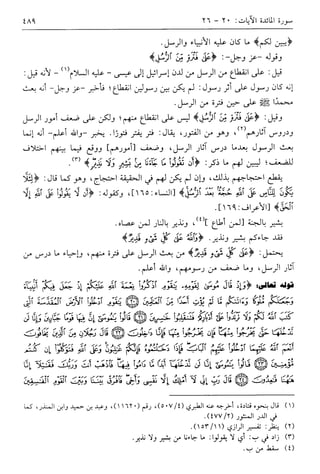 سورة المائدة الآيات: ٢٠ - ٢٦ ٤٨٩
﴿يبين لكم﴾ ما كان عليه الأنبياء والرسل.
وقوله -عز وجل-: ﴿عَلَىٰ فَتْرَةٍ مِّنَ ٱلرُّسُلِ﴾
قيل: على انقطاع من الرسل من لدن إسرائيل إلى عيسى - عليه السلام(١) - لأنه قيل:
إنه كان رسول على أثر رسول؛ لم يكن بين رسولين انقطاع؛ فأخبر -عز وجل- أنه بعث
محمدًا ﷺ على حين فترة من الرسل.
وقيل: ﴿عَلَىٰ فَتْرَةٍ مِّنَ ٱلرُّسُلِ﴾ ليس على انقطاع منهم؛ ولكن على ضعف أمور الرسل
ودروس آثارهم(٢)، وهو من الفتور، يقال: فتر يفتر فتورًا. يخبر -والله أعلم- أنه إنما
بعث الرسول بعدما درس آثار الرسل، وضعف [أمورهم] ووقع فيما بينهم اختلاف
للضعف؛ ليبين لهم ما ذكر: ﴿أَن تَقُولُوا۟ مَا جَآءَنَا مِنۢ بَشِيرٍ وَلَا نَذِيرٍ﴾(٣).
يقطع احتجاجهم بذلك، وإن لم يكن لهم في الحقيقة احتجاج، وهو كما قال: ﴿لِئَلَّا
يَكُونَ لِلنَّاسِ عَلَى ٱللَّهِ حُجَّةٌۢ بَعْدَ ٱلرُّسُلِ﴾ [النساء: ١٦٥]، وكقوله: ﴿أَن لَّا يَقُولُوا۟ عَلَى ٱللَّهِ إِلَّا
ٱلْحَقَّ﴾ [الأعراف: ١٦٩].
بشير بالجنة [لمن أطاع](٤)، ونذير بالنار لمن عصاه.
فقد جاءكم بشير ونذير. ﴿وَٱللَّهُ عَلَىٰ كُلِّ شَىْءٍ قَدِيرٌ﴾
يحتمل: ﴿عَلَىٰ كُلِّ شَىْءٍ قَدِيرٌ﴾ من بعث الرسل على فترة منهم، وإحياء ما درس من
آثار الرسل، وما ضعف من رسومهم، والله أعلم.
قوله تعالى: ﴿وَإِذْ قَالَ مُوسَىٰ لِقَوْمِهِۦ يَٰقَوْمِ ٱذْكُرُوا۟ نِعْمَةَ ٱللَّهِ عَلَيْكُمْ إِذْ جَعَلَ فِيكُمْ أَنۢبِيَآءَ
وَجَعَلَكُم مُّلُوكًا وَءَاتَىٰكُم مَّا لَمْ يُؤْتِ أَحَدًا مِّنَ ٱلْعَٰلَمِينَ ۝ يَٰقَوْمِ ٱدْخُلُوا۟ ٱلْأَرْضَ ٱلْمُقَدَّسَةَ ٱلَّتِى
كَتَبَ ٱللَّهُ لَكُمْ وَلَا تَرْتَدُّوا۟ عَلَىٰٓ أَدْبَارِكُمْ فَتَنقَلِبُوا۟ خَٰسِرِينَ ۝ قَالُوا۟ يَٰمُوسَىٰٓ إِنَّ فِيهَا قَوْمًا جَبَّارِينَ وَإِنَّا لَن
نَّدْخُلَهَا حَتَّىٰ يَخْرُجُوا۟ مِنْهَا فَإِن يَخْرُجُوا۟ مِنْهَا فَإِنَّا دَٰخِلُونَ ۝ قَالَ رَجُلَانِ مِنَ ٱلَّذِينَ يَخَافُونَ
أَنْعَمَ ٱللَّهُ عَلَيْهِمَا ٱدْخُلُوا۟ عَلَيْهِمُ ٱلْبَابَ فَإِذَا دَخَلْتُمُوهُ فَإِنَّكُمْ غَٰلِبُونَ وَعَلَى ٱللَّهِ فَتَوَكَّلُوٓا۟ إِن كُنتُم
مُّؤْمِنِينَ ۝ قَالُوا۟ يَٰمُوسَىٰٓ إِنَّا لَن نَّدْخُلَهَآ أَبَدًا مَّا دَامُوا۟ فِيهَا فَٱذْهَبْ أَنتَ وَرَبُّكَ فَقَٰتِلَآ إِنَّا
هَٰهُنَا قَٰعِدُونَ ۝ قَالَ رَبِّ إِنِّى لَآ أَمْلِكُ إِلَّا نَفْسِى وَأَخِى فَٱفْرُقْ بَيْنَنَا وَبَيْنَ ٱلْقَوْمِ ٱلْفَٰسِقِينَ
(١) قال بنحوه قتادة، أخرجه عنه الطبري (٤/ ٥٠٧)، رقم (١١٦٢٠)، وعبد بن حميد وابن المنذر، كما
في الدر المنثور (٢/ ٤٧٧).
(٢) ينظر: تفسير الرازي (١١/ ١٥٣).
(٣) زاد في ب: أي لا يقولوا: ما جاءنا من بشير ولا نذير.
(٤) سقط من ب.